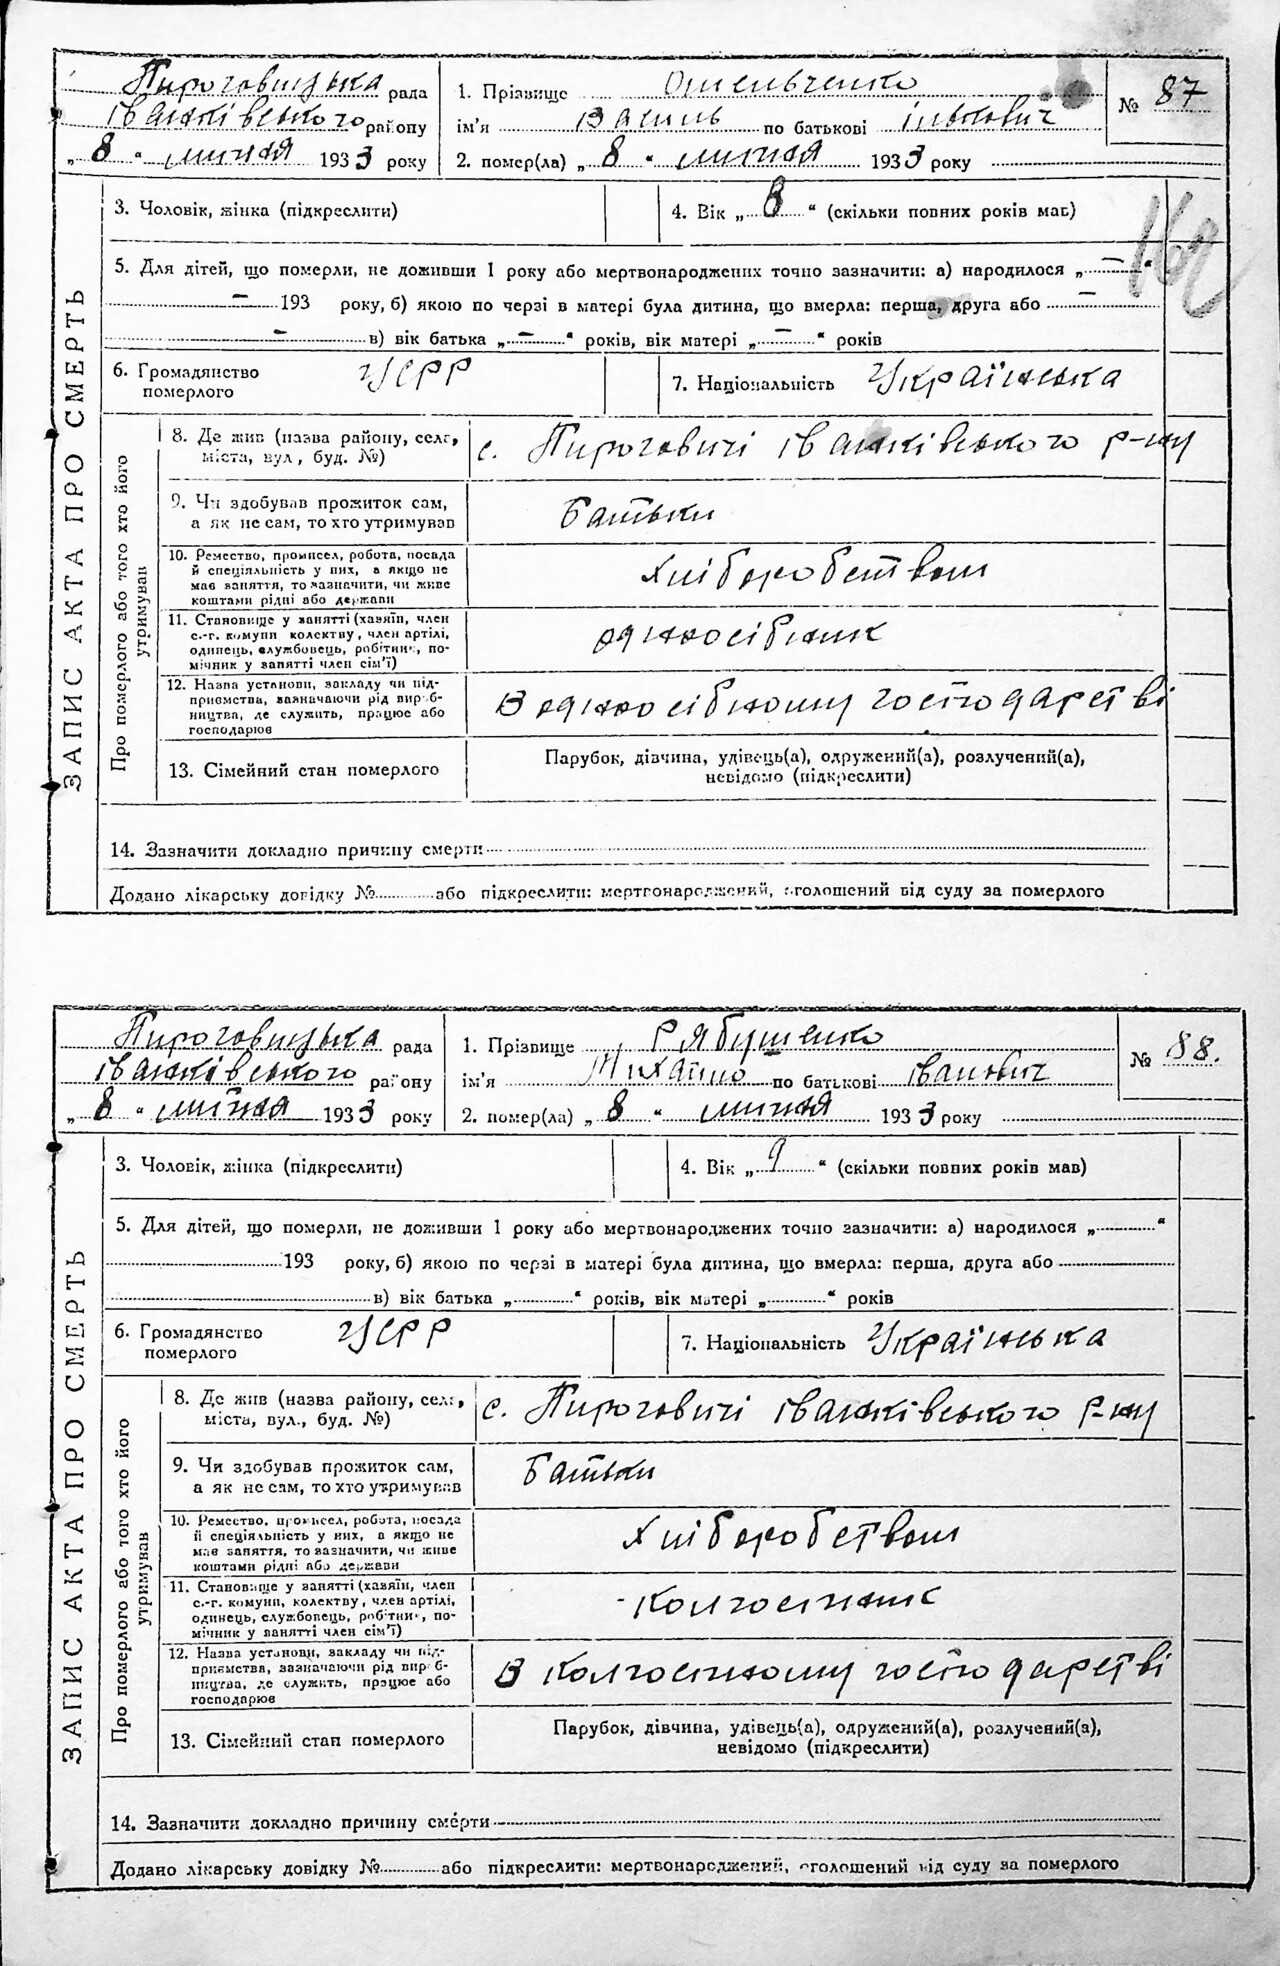 Пироговицька рада
Іванківського району
„ 8 “ липня 1933 року
1. Прізвище Омельченко
ім'я Василь по батькові Ількович
2. помер(ла) „ 8 “ липня 1933 року
№ 87
3. Чоловік, жінка (підкреслити)
4. Вік „ 8 “ (скільки повних років мав)
162
5. Для дітей, що померли, не доживши 1 року або мертвонароджених точно зазначити: а) народилося „ — “
— 193 року, б) якою по черзі в матері була дитина, що вмерла: перша, друга або —
— в) вік батька „ — “ років, вік матері „ — “ років
6. Громадянство
померлого
УСРР
7. Національність Українська
ЗАПИС АКТА ПРО СМЕРТЬ
Про померлого або того хто його
утримував
8. Де жив (назва району, села,
міста, вул., буд. №)
с. Пироговичі Іванківського р-ну
9. Чи здобував прожиток сам,
а як не сам, то хто утримував
Батьки
10. Ремество, промисел, робота, посада
й спеціяльність у них, а якщо не
має заняття, то зазначити, чи живе
коштами рідні або держави
Хліборобством
11. Становище у занятті (хазяїн, член
с.-г. комуни, колектву, член артілі,
одинець, службовець, робітник, по-
мічник у занятті член сім'ї)
одноосібник
12. Назва установи, закладу чи під-
приємства, зазначаючи рід вироб-
ництва, де служить, працює або
господарює
В одноосібному господарстві
13. Сімейний стан померлого
Парубок, дівчина, удівець(а), одружений(а), розлучений(а),
невідомо (підкреслити)
14. Зазначити докладно причину смерти
Додано лікарську довідку № або підкреслити: мертвонароджений, оголошений від суду за померлого
Пироговицька рада
Іванківського району
„ 8 “ липня 1933 року
1. Прізвище Рябушенко
ім'я Михайло по батькові Іванович
2. помер(ла) „ 8 “ липня 1933 року
№ 88.
3. Чоловік, жінка (підкреслити)
4. Вік „ 9 “ (скільки повних років мав)
5. Для дітей, що померли, не доживши 1 року або мертвонароджених точно зазначити: а) народилося „ “
193 року, б) якою по черзі в матері була дитина, що вмерла: перша, друга або
в) вік батька „ “ років, вік матері „ “ років
6. Громадянство
померлого
УСРР
7. Національність Українська
ЗАПИС АКТА ПРО СМЕРТЬ
Про померлого або того хто його
утримував
8. Де жив (назва району, села,
міста, вул., буд. №)
с. Пироговичі Іванківського р-ну
9. Чи здобував прожиток сам,
а як не сам, то хто утримував
Батьки
10. Ремество, промисел, робота, посада
й спеціяльність у них, а якщо не
має заняття, то зазначити, чи живе
коштами рідні або держави
Хліборобством
11. Становище у занятті (хазяїн, член
с.-г. комуни, колектву, член артілі,
одинець, службовець, робітник, по-
мічник у занятті член сім'ї)
Колгоспник
12. Назва установи, закладу чи під-
приємства, зазначаючи рід вироб-
ництва, де служить, працює або
господарює
В колгоспному господарстві
13. Сімейний стан померлого
Парубок, дівчина, удівець(а), одружений(а), розлучений(а),
невідомо (підкреслити)
14. Зазначити докладно причину смерти
Додано лікарську довідку № або підкреслити: мертвонароджений, оголошений від суду за померлого